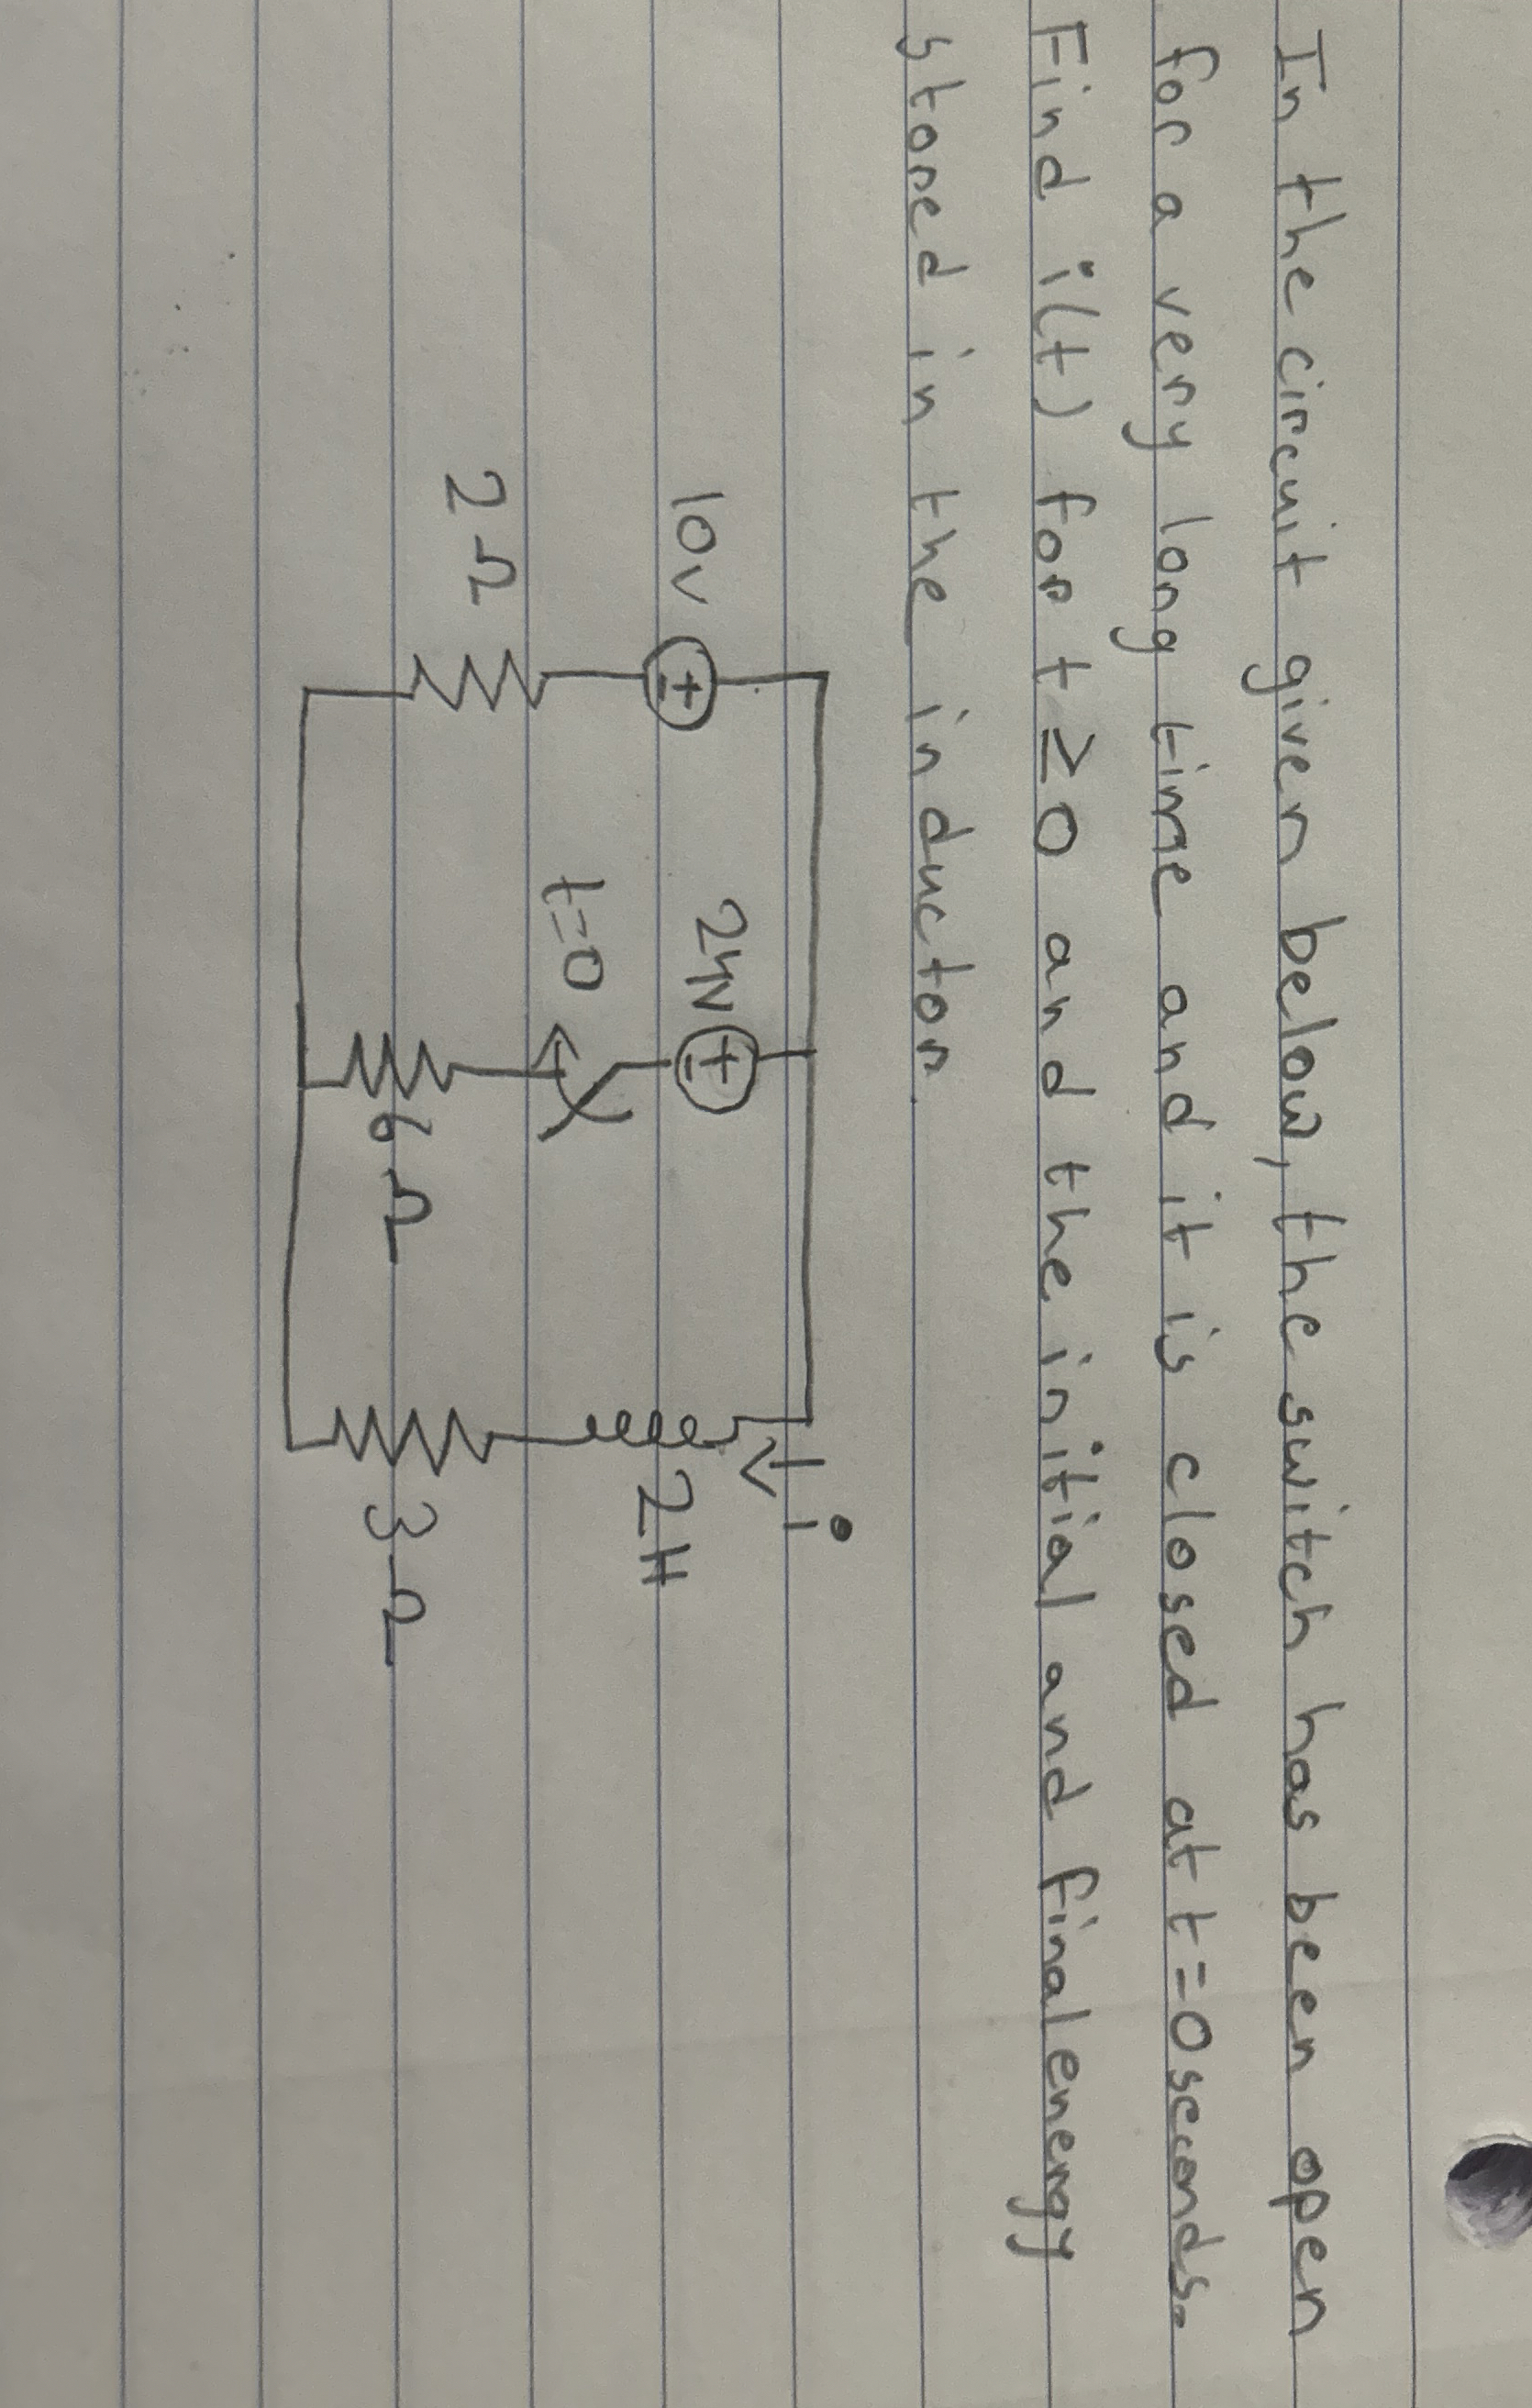 In the circuit given below, the switch has been open
for a very long time and it is closed at t=0 seconds.
Find i(t) for t≥0 and the initial and final energy
stored in the inductor.
i
10v
24V
2H
t=0
2Ω
6Ω
3Ω